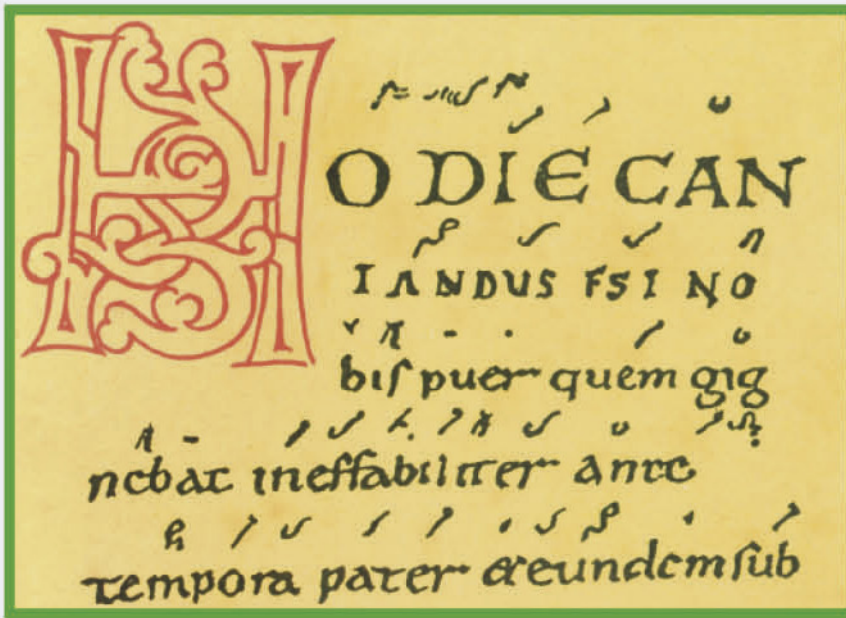 HODIE CAN
IANDUS FSI NO
biſ puer quem gig
nebat ineffabiliter ante
tempora pater & eundem ſub